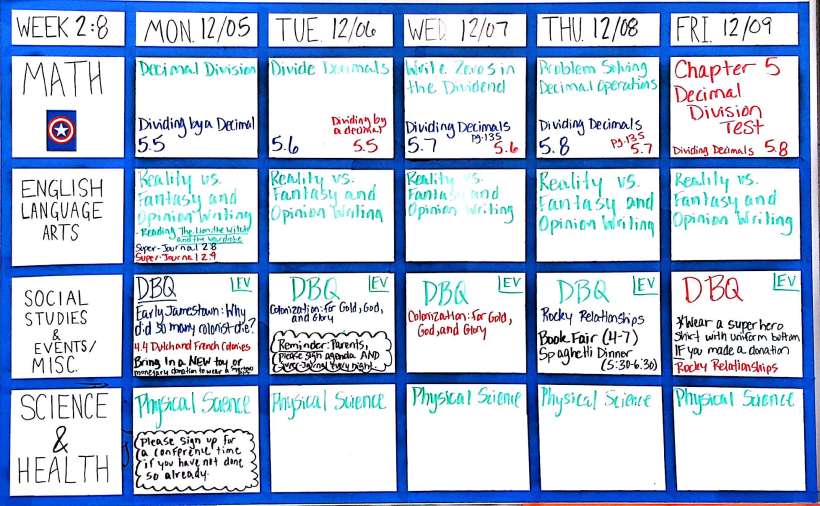 WEEK 2:8
MON. 12/05
TUE. 12/06
WED. 12/07
THU. 12/08
FRI. 12/09
MATH
Decimal Division
Dividing by a Decimal
5.5
Divide Decimals
Dividing by
a decimal
5.6
5.5
Write Zeros in
the Dividend
Dividing Decimals
pg. 135
5.7
5.6
Problem Solving
Decimal Operations
Dividing Decimals
pg. 135
5.8
5.7
Chapter 5
Decimal
Division
Test
Dividing Decimals 5.8
ENGLISH
LANGUAGE
ARTS
Reality vs.
Fantasy and
Opinion Writing
- Reading The Lion, the Witch
and the Wardrobe
Super-Journal 2.8
Super-Journal 2.9
Reality vs.
Fantasy and
Opinion Writing
Reality vs.
Fantasy and
Opinion Writing
Reality vs.
Fantasy and
Opinion Writing
Reality vs.
Fantasy and
Opinion Writing
SOCIAL
STUDIES
&
EVENTS/
MISC.
DBQ
EV
Early Jamestown: Why
did so many colonist die?
4.4 Dutch and French Colonies
Bring in a NEW toy or
monetary donation to wear a
DBQ
EV
Colonization: for Gold, God,
and Glory
Reminder: Parents,
please sign agenda AND
Super-Journal every night.
DBQ
EV
Colonization: for Gold,
God, and Glory
DBQ
EV
Rocky Relationships
Book Fair (4-7)
Spaghetti Dinner
(5:30-6:30)
DBQ
EV
*Wear a superhero
shirt with uniform bottom
IF you made a donation
Rocky Relationships
SCIENCE
&
HEALTH
Physical Science
Please sign up for
a conference time
if you have not done
so already.
Physical Science
Physical Science
Physical Science
Physical Science